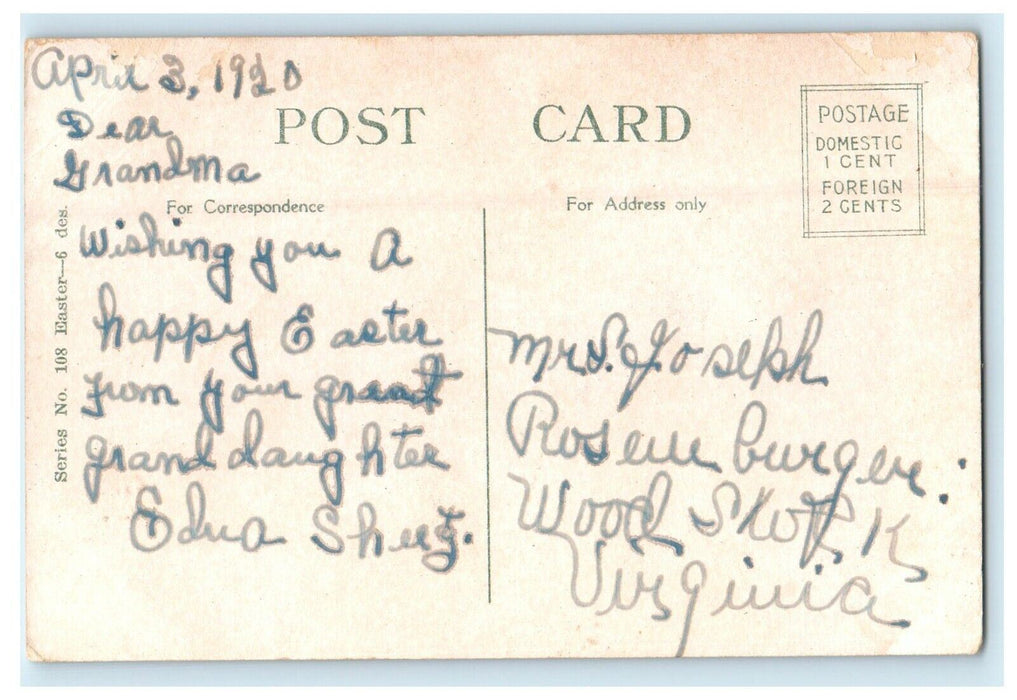 April 3, 1920
Dear
Grandma
POST CARD
For Correspondence
For Address only
POSTAGE
DOMESTIC
1 CENT
FOREIGN
2 CENTS
Series No. 108 Easter—6 des.
Wishing you A
happy Easter
from your
grand daughter
Edna
Mrs. Joseph
Rosenburger.
Wood Stock
Virginia